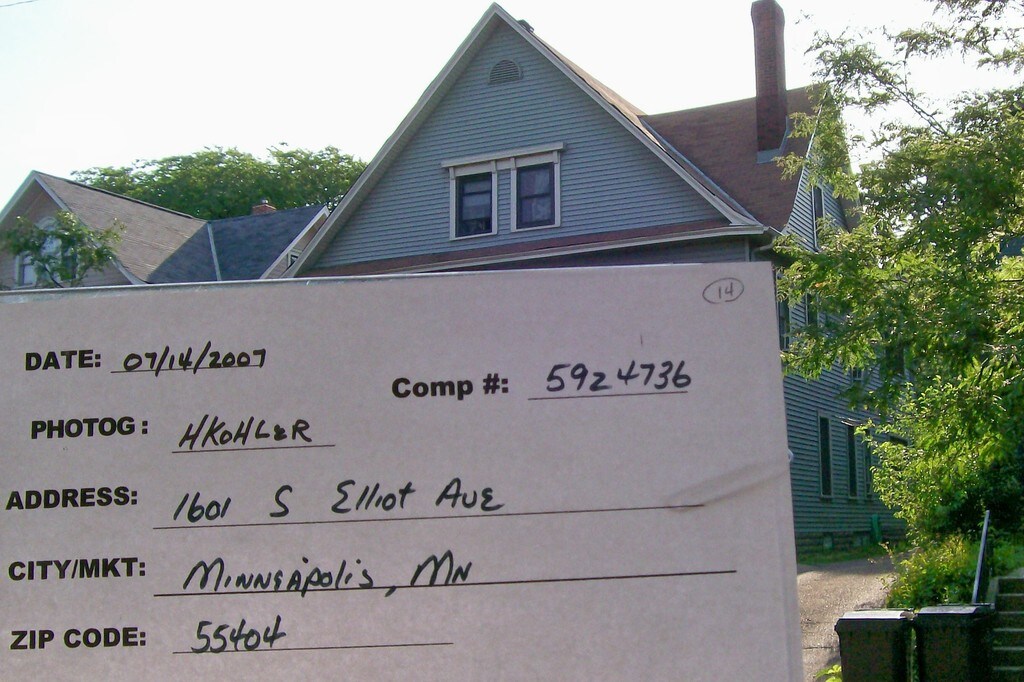 14
DATE: 07/14/2007
Comp #: 5924736
PHOTOG: HKOHLER
ADDRESS: 1601 S Elliot Ave
CITY/MKT: Minneapolis, MN
ZIP CODE: 55404